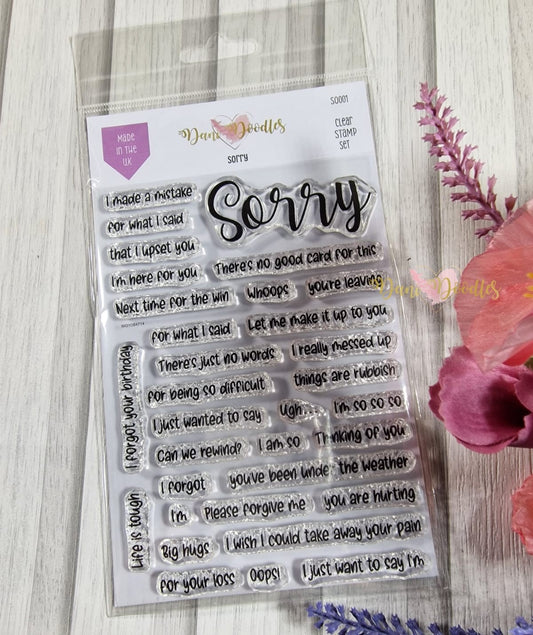 MADE
IN THE
UK
Dani Doodles
sorry
SO001
CLEAR
STAMP
SET
Sorry
I made a mistake
for what I said
that I upset you
I'm here for you
There's no good card for this
Next time for the win
Whoops
you're leaving
Dani Doodles
for what I said
Let me make it up to you
There's just no words
I really messed up
for being so difficult
things are rubbish
I forgot your birthday
I just wanted to say
Ugh...
I'm so so so
Can we rewind?
I am so
Thinking of you
I forgot
you've been under the weather
Life is tough
I'm
Please forgive me
you are hurting
Big hugs
I wish I could take away your pain
for your loss
Oops!
I just want to say I'm